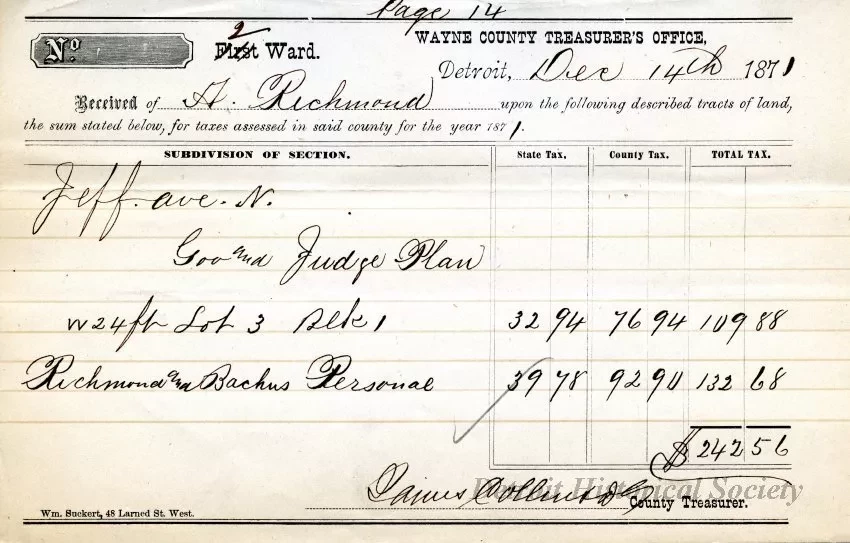 Page 14
No.
2
First Ward.
WAYNE COUNTY TREASURER'S OFFICE,
Detroit, Dec 14th 1871
Received of A. Richmond upon the following described tracts of land,
the sum stated below, for taxes assessed in said county for the year 1871.
SUBDIVISION OF SECTION. State Tax. County Tax. TOTAL TAX.
Jeff. ave. N.
Gov and Judge Plan
W 24 ft Lot 3 Blk 1 32 94 76 94 109 88
Richmond and Bachus Personal 39 78 92 90 132 68
$ 242 56
James Collins
County Treasurer.
Detroit Historical Society
Wm. Suckert, 48 Larned St. West.